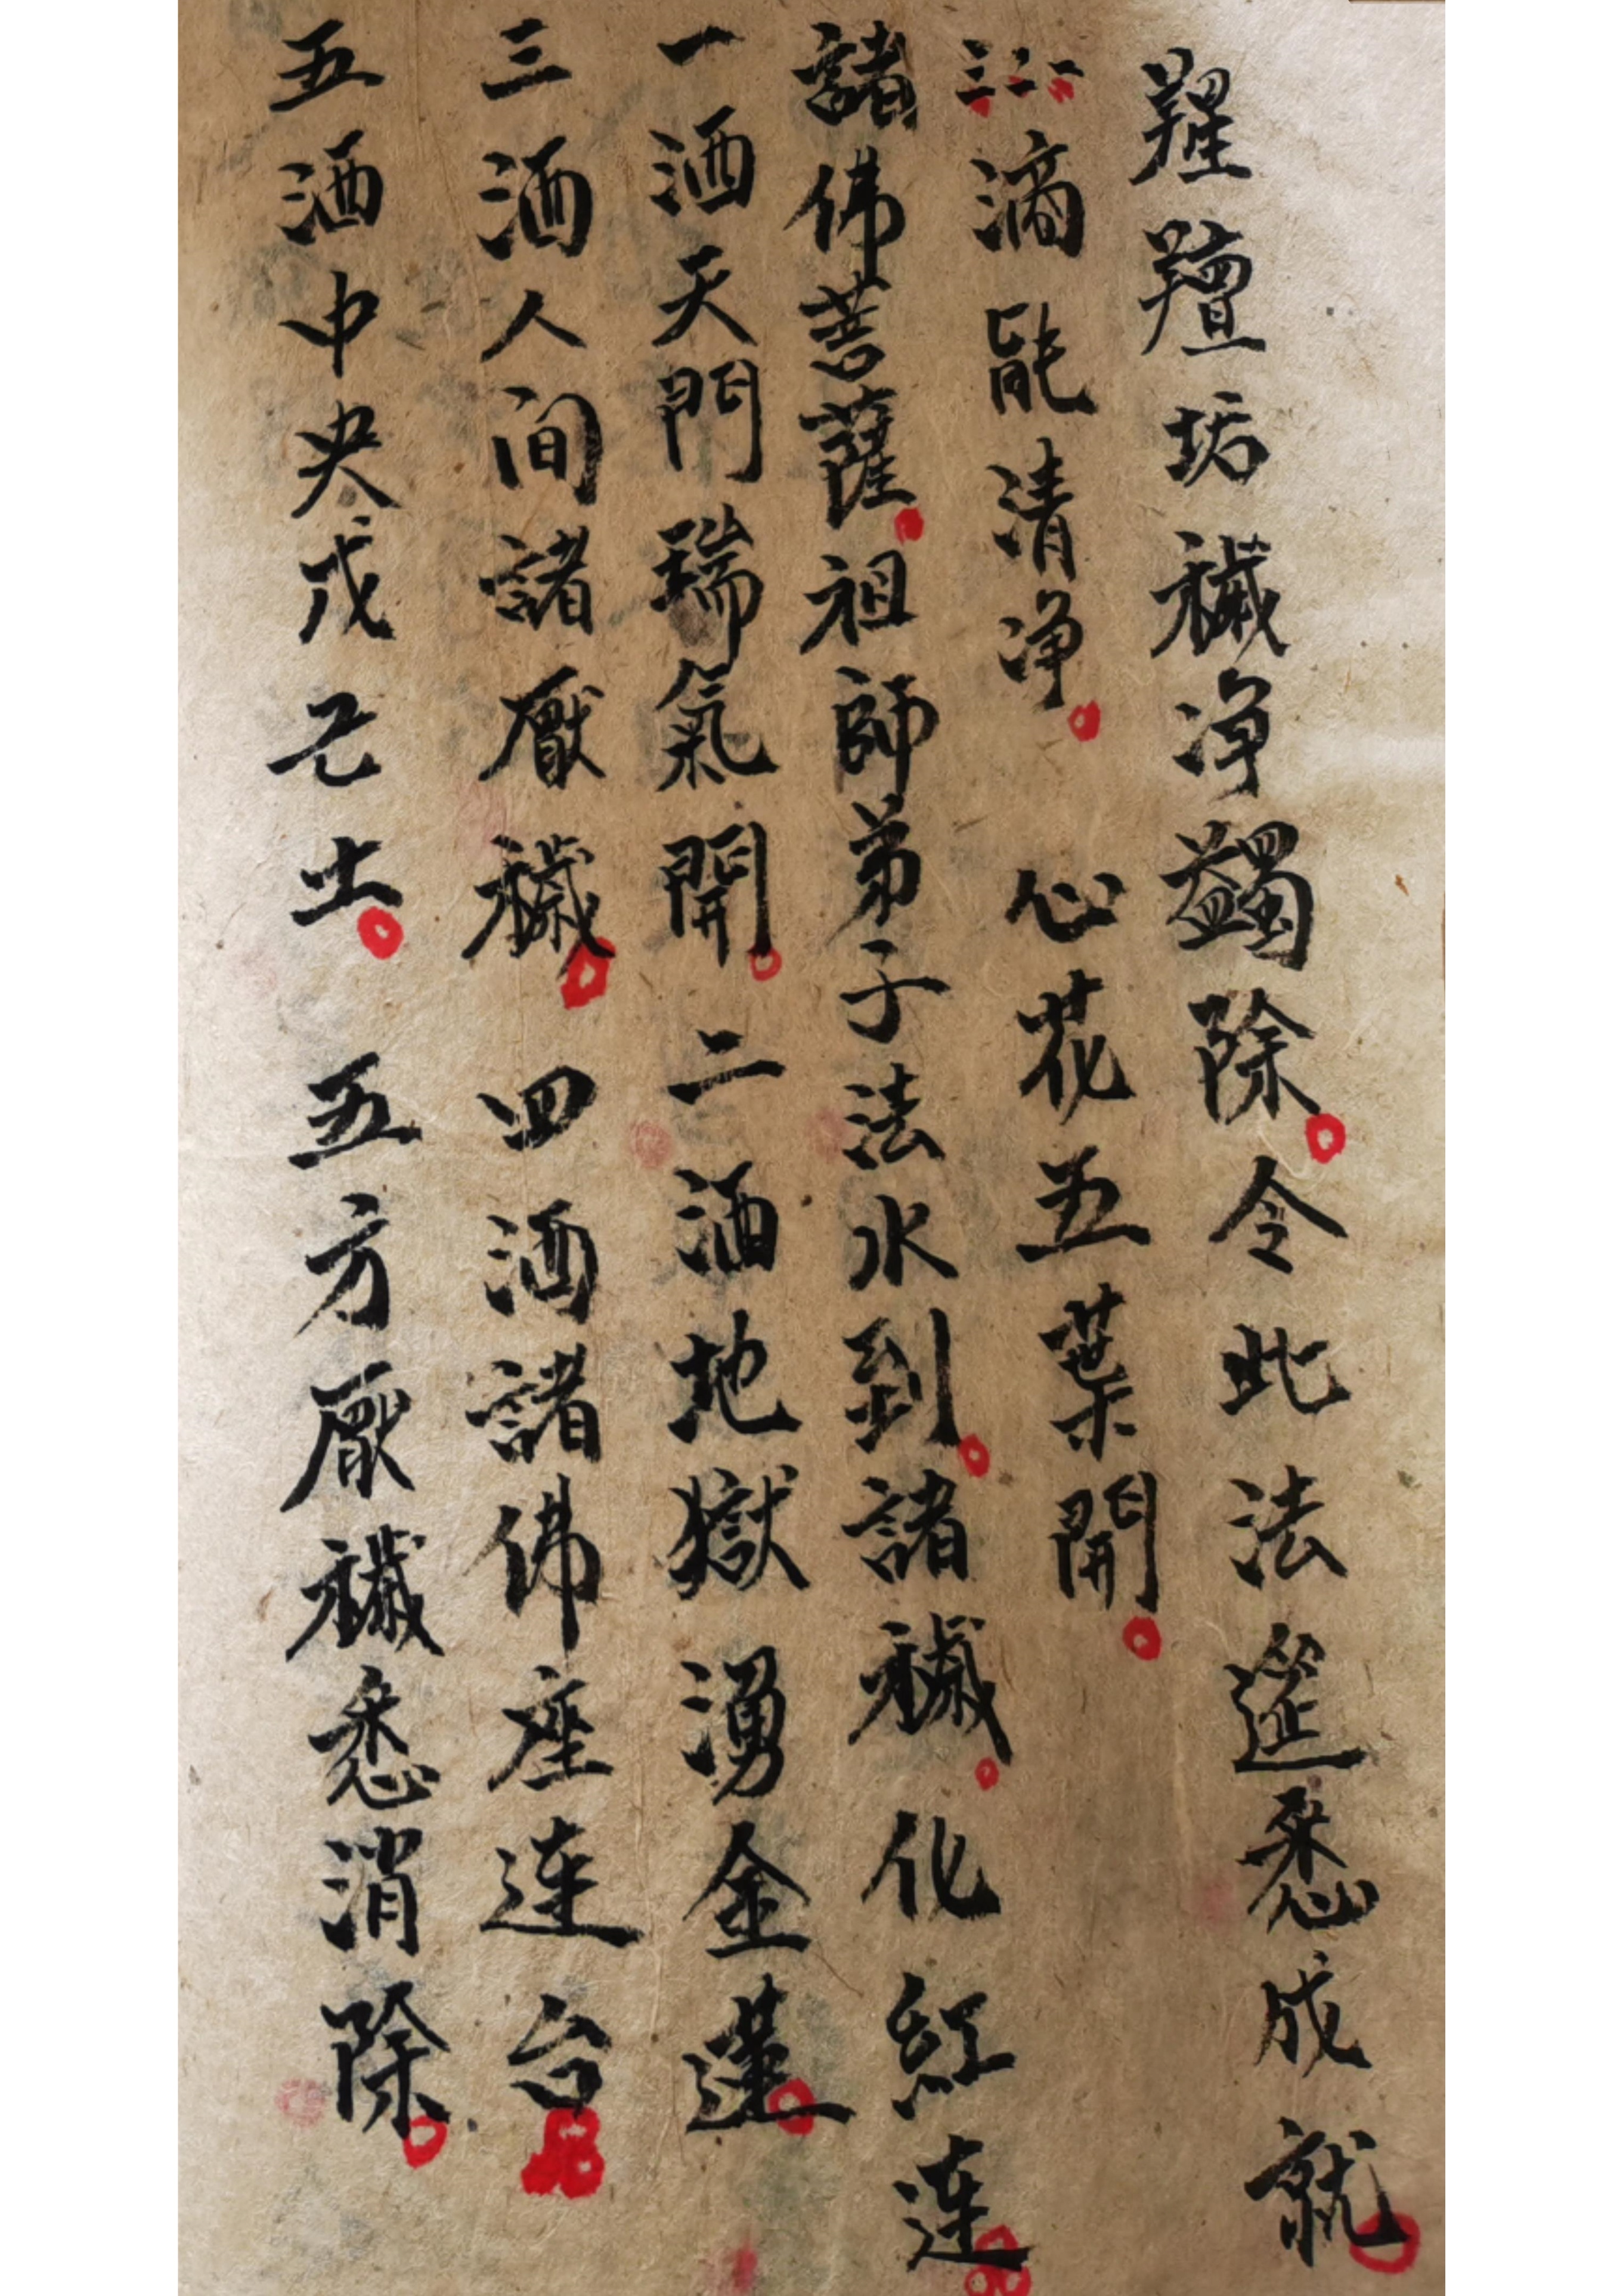 羶坵穢净蠲除令此法筵悉成就
一二三滴能清净心花五葉開
諸佛菩薩祖師弟子法水到諸穢化紅連
一洒天門瑞氣開二洒地獄湧金蓮
三洒人间諸厭穢四洒諸佛座连台
五洒中央戊己土五方厭穢悉消除